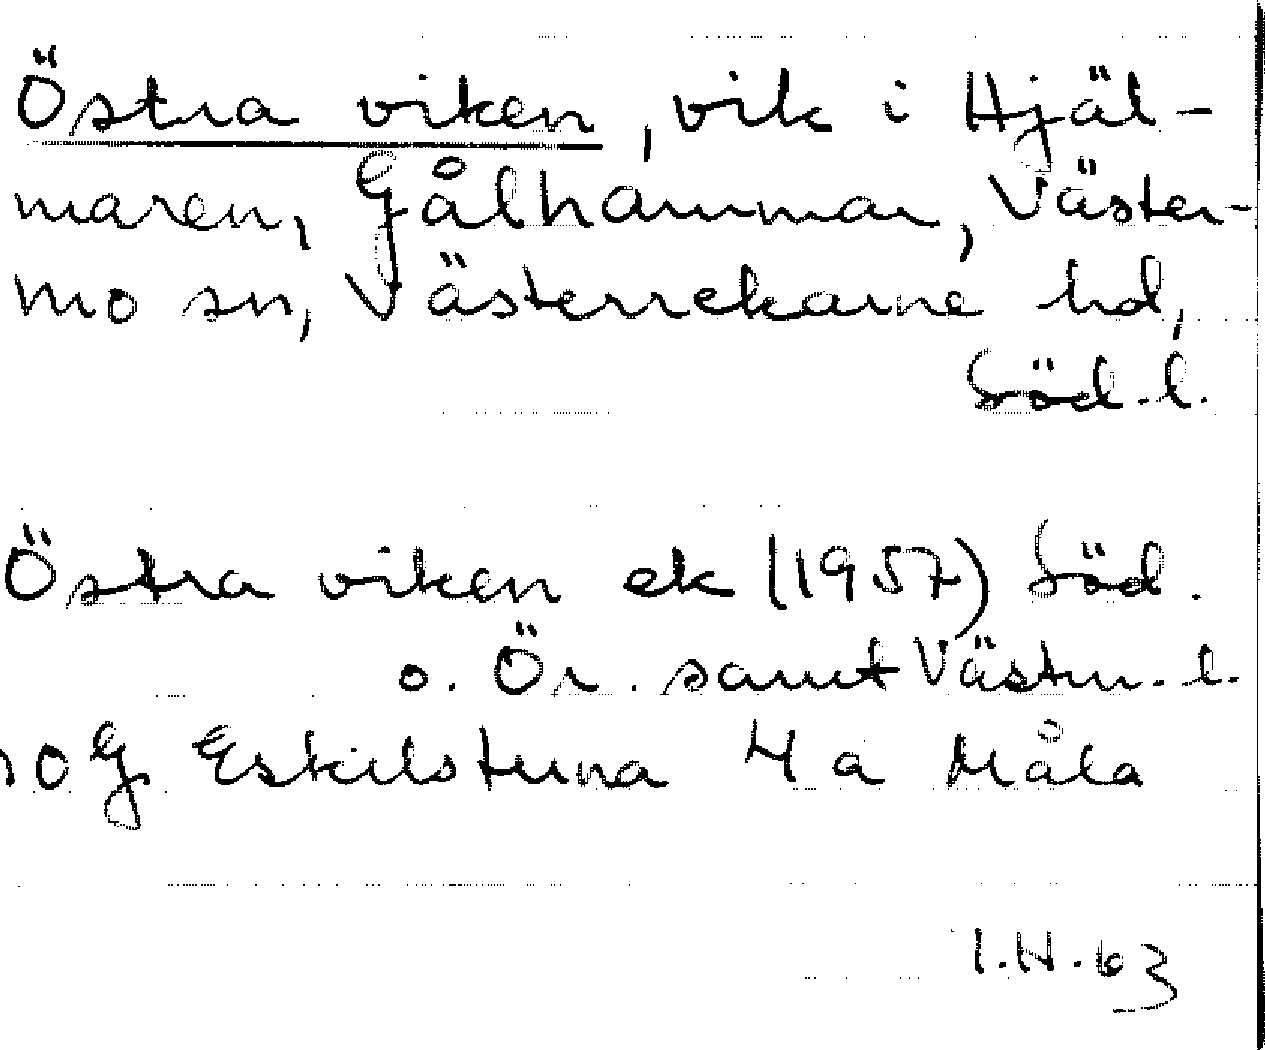 Östra viken, vik i Hjäl-
maren, Gålhammar, Väster-
mo sn, Västerrekarne hd,
Söd. l.
Östra viken ek (1957) Söd.
o. Ör. samt Västm. l.
10G Eskilstuna 4 a Måla
I.H.63